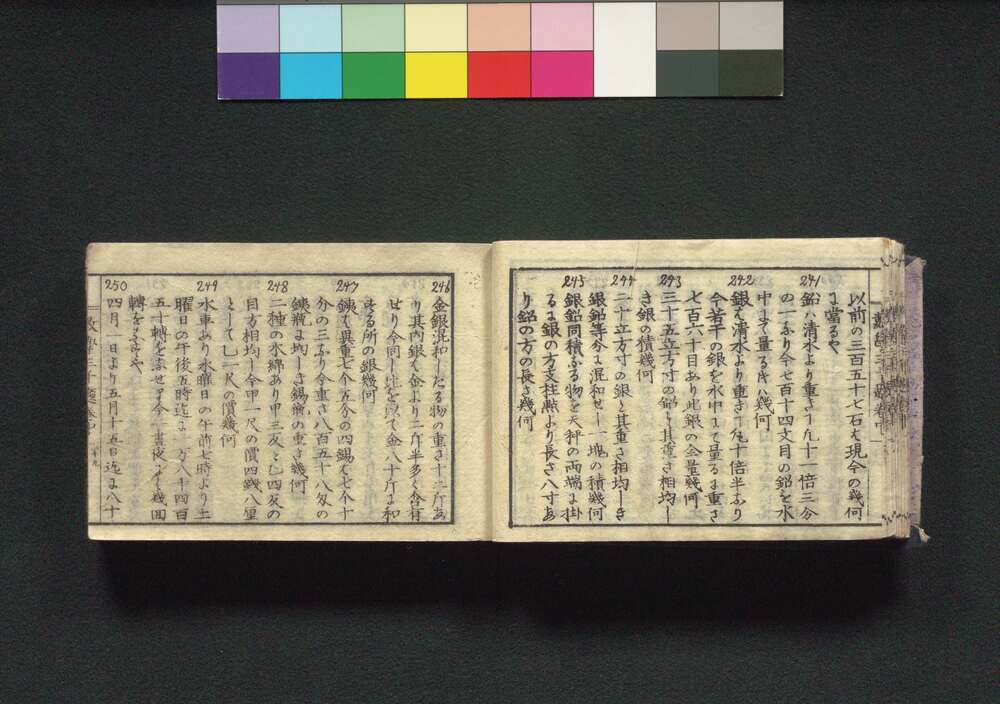 以前の三百五十七石ハ現今の幾何
に當るや
241
鉛ハ清水より重さ十九十一倍三分
の一なり今七百十四文目の鉛を水
中にて量る片ハ幾何
242
銀ハ清水より重さ十倍半なり
今若干の銀を水中にて量るに重さ
七百六十目あり此銀の全量幾何
243
三十五立方寸の鉛と其重さ相均し
き銀の積幾何
244
二十立方寸の銀と其重さ相均しき
銀鉛等分に混和せし一塊の積幾何
245
銀鉛同積なる物を天秤の両端に掛
るに銀の方支柱點より長さ八寸あ
り鉛の方の長さ幾何
246
金銀混和したる物の重さ十二斤あ
り其内銀ハ金より二斤半多く含有
せり今同し比を以て金八十斤に和
する所の銀幾何
247
銕ハ異重七个五分の四錫ハ七个十
分の三なり今重さ八百五十八匁の
銕瓶に均しき錫瓶の重さ幾何
248
二種の木綿あり甲三反と乙四反の
目方相均し今甲一尺の價四銭八厘
として乙一尺の價幾何
249
水車あり水曜日の午前七時より土
曜日の午後五時迄に一万八千四百
五十轉をなせり今一昼夜にハ幾回
轉をなすや
250
四月一日より五月十五日迄に八十